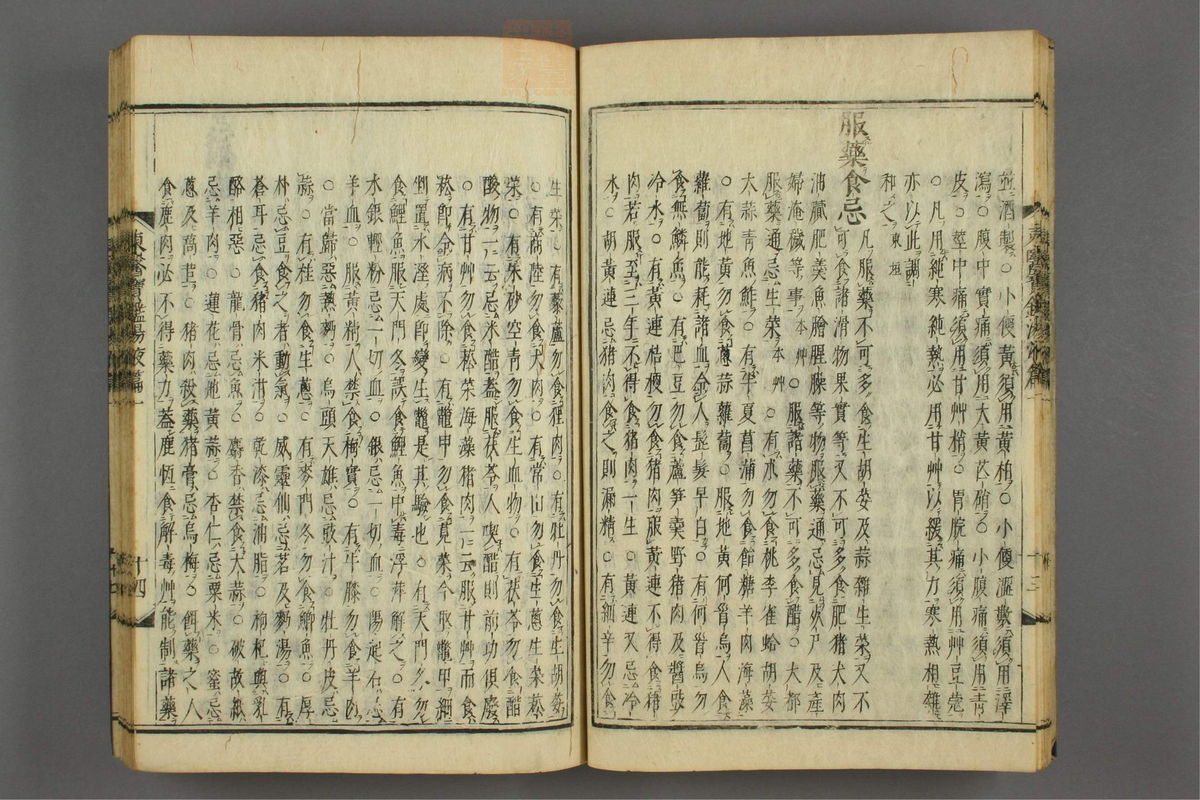 並酒製○小便黃須用黃柏○小便澁數須用澤
瀉○腹中實痛須用大黃芒硝○小腹痛須用靑
皮○莖中痛須用甘艸梢○胃脘痛須用艸豆蔻
○凡用純寒純熱必用甘艸以緩其力寒熱相雜
亦以此調
和之東垣
服藥食忌
凡服藥不可多食生胡荽及蒜雜生菜又不
可食諸滑物果實等又不可多食肥猪犬肉
油膩肥羙魚膾腥臊等物服藥通忌見死尸及產
婦淹穢等事本艸○服諸藥不可多食醋○大都
服藥通忌生菜本艸○有朮勿食桃李雀蛤胡荽
大蒜靑魚鮓○有半夏菖蒲勿食飴糖羊肉海藻
○有地黃勿食蔥蒜蘿蔔○服地黃何首烏人食
蘿蔔則能耗諸血令人髭髮早白○有何首烏勿
食無鱗魚○有巴豆勿食蘆笋羮野猪肉及醬豉
冷水○有黃連桔梗勿食猪肉服黃連不得食猪
肉若服至三年不得食猪肉一生○黃連又忌冷
水○胡黃連忌猪肉食之則漏精○有細辛勿食
生菜○有藜蘆勿食狸肉○有牡丹勿食生胡荽
○有商陸勿食犬肉○有常山勿食生蔥生菜菘
菜○有朱砂空靑勿食生血物○有茯苓勿食醋
酸物一云忌米醋盖服茯苓人喫醋則前功俱廢
○有甘艸勿食菘菜海藻猪肉一云服甘艸而食
菘卽令病不除○有鼈甲勿食莧菜今取鼈甲細
剉置水溼處卽變生鼈是其驗也○有天門冬勿
食鯉魚服天門冬誤食鯉魚中毒浮萍解之○有
水銀輕粉忌一切血○銀忌一切血○陽起石忌
羊血○服黃精人禁食梅實○有牛膝勿食羊肉
○當歸惡熱麪○烏頭天雄忌豉汁○牡丹皮忌
蒜○有桂勿食生蔥○有麥門冬勿食鯽魚○厚
朴忌豆食之者動氣○威靈仙忌茗及麪湯○有
蒼耳忌食猪肉米泔○乾漆忌油脂○柳杞與乳
酪相惡○龍骨忌魚○麝香禁食大蒜○破故紙
忌羊肉○蓮花忌地黃蒜○杏仁忌粟米○蜜忌
蔥及萵苣○猪肉殺藥猪膏忌烏梅○餌藥之人
食鹿肉必不得藥力盖鹿恆食解毒艸能制諸藥
東醫寶鑑湯液篇一
十四
東醫寶鑑湯液篇一
十三